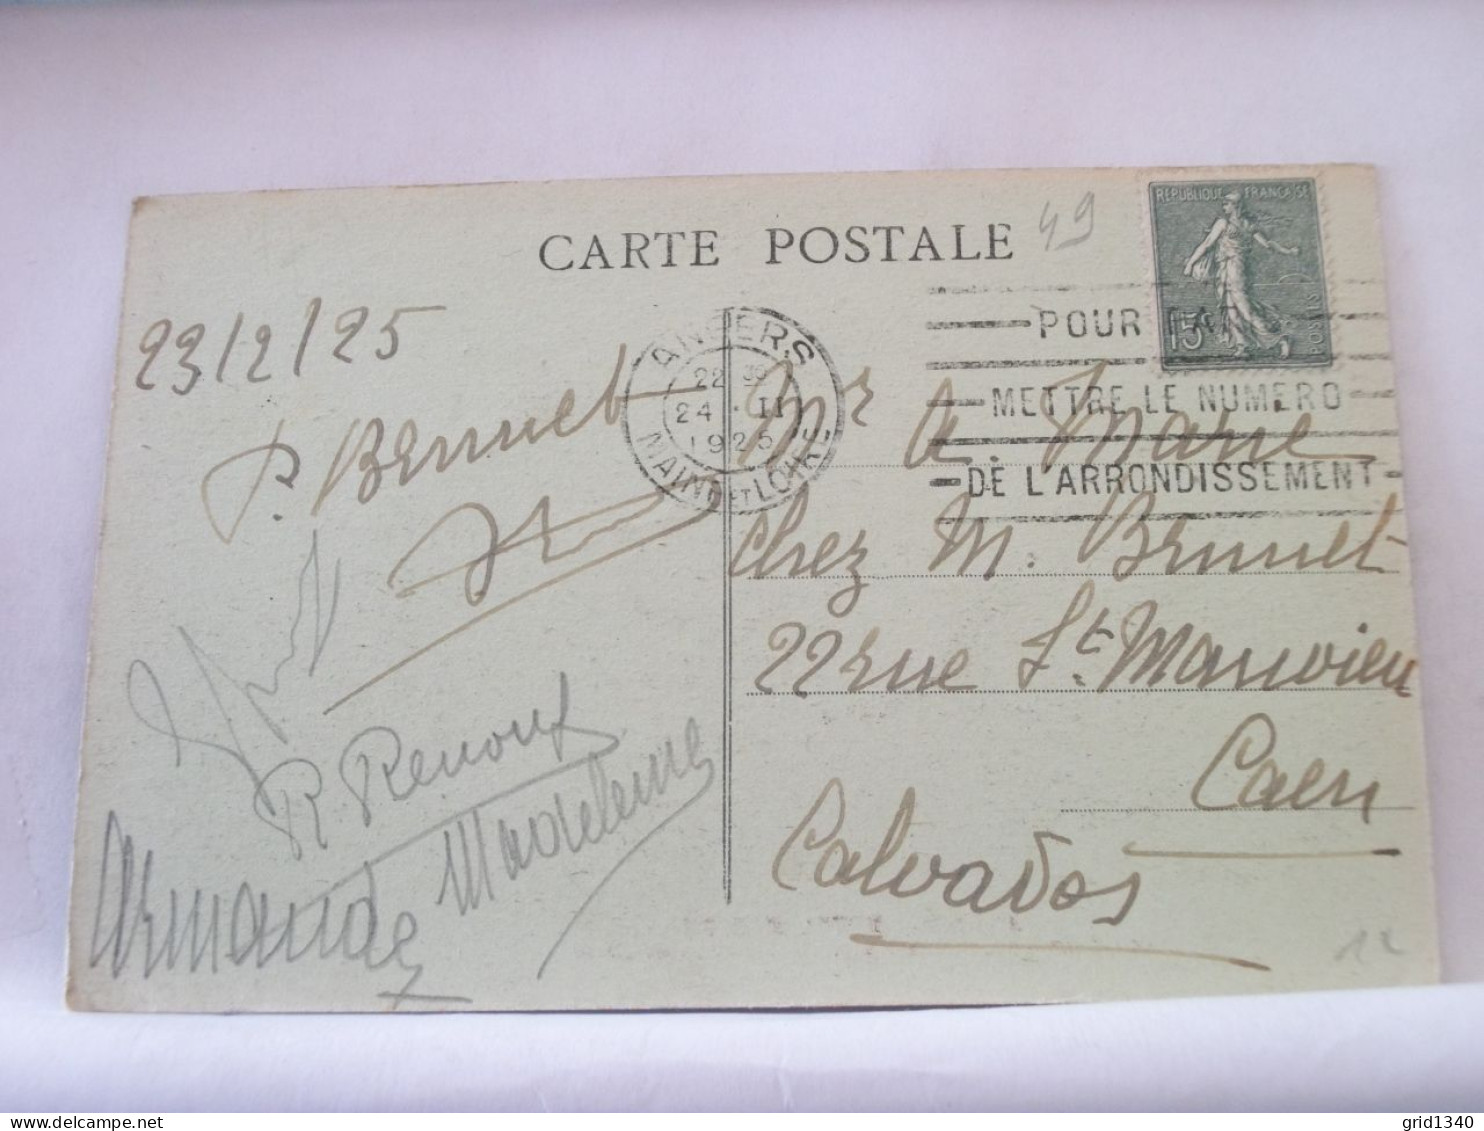 CARTE POSTALE
49
REPUBLIQUE FRANÇAISE
15c
POSTES
23/2/25
P. Bernuet
ANGERS
22 30
24 · II
1925
MAINE ET LOIRE
POUR PARIS
METTRE LE NUMERO
DE L'ARRONDISSEMENT
Mr A. Marie
Chez M. Bernuet
22 rue St. Manvieu
Caen
Calvados
R Renouf
Madeleine
Armande
12
delcampe.net
grid1340